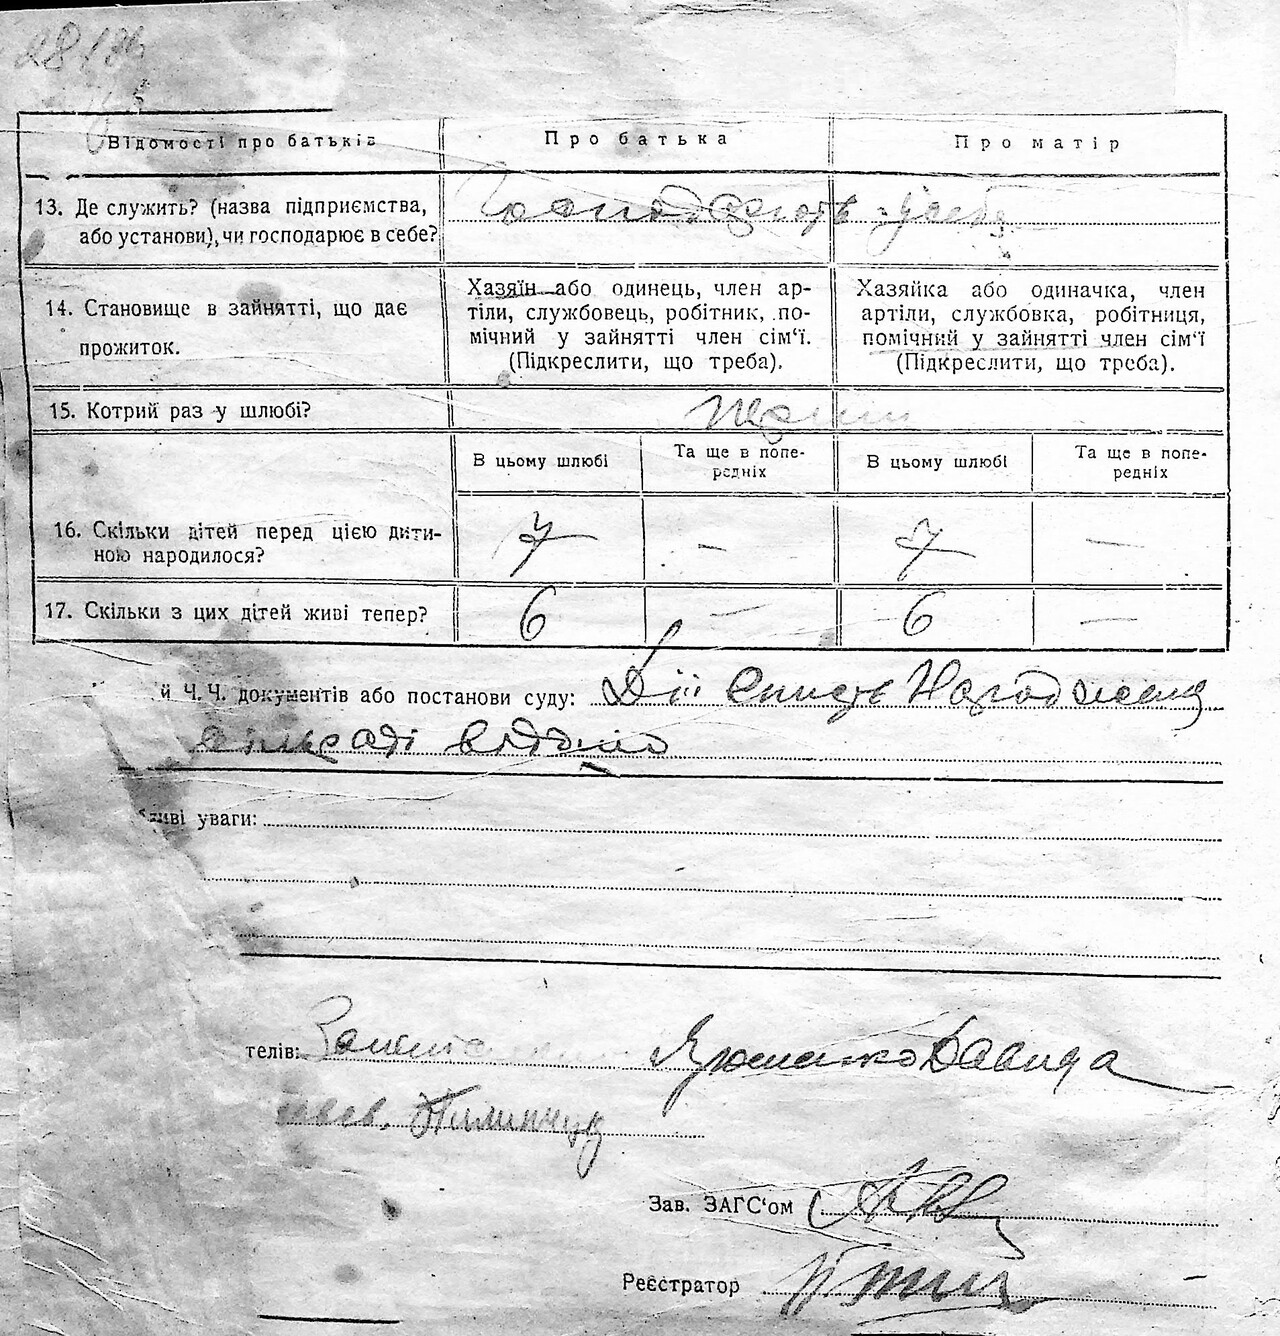 Відомості про батьків
Про батька
Про матір
13. Де служить? (назва підприємства,
або установи), чи господарює в себе?
14. Становище в зайнятті, що дає
прожиток.
Хазяїн або одинець, член ар-
тіли, службовець, робітник, по-
мічний у зайнятті член сім‘ї.
(Підкреслити, що треба).
Хазяйка або одиначка, член
артіли, службовка, робітниця,
помічний у зайнятті член сім‘ї
(Підкреслити, що треба).
15. Котрий раз у шлюбі?
В цьому шлюбі
Та ще в попе-
редніх
В цьому шлюбі
Та ще в попе-
редніх
16. Скільки дітей перед цією дити-
ною народилося?
7 — 7 —
17. Скільки з цих дітей живі тепер?
6 — 6 —
й Ч.Ч. документів або постанови суду:
уваги:
телів: Яременко Давида
Зав. ЗАГС‘ом
Реєстратор